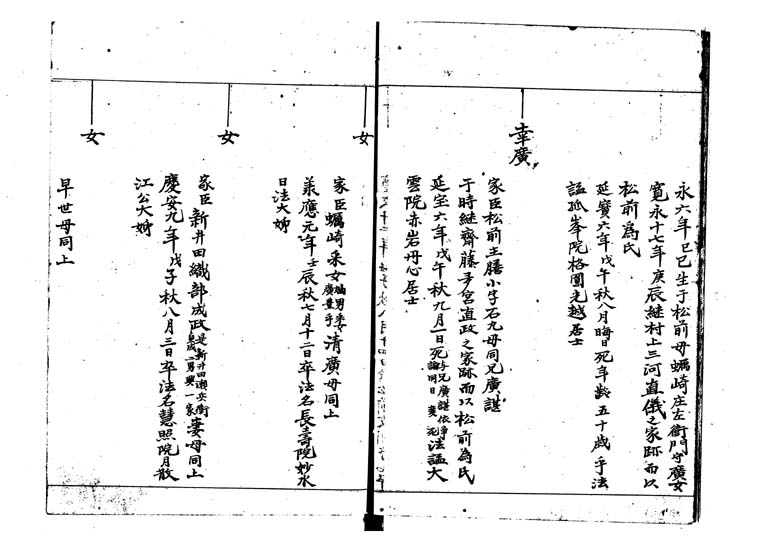 永六年己巳生于松前母蠣崎庄左衛門守廣女
寛永十七年庚辰継村上三河直儀之家跡而以
松前為氏
延寶六年戊午秋八月晦日死年齢五十歳乎法
謚孤峯院格圓走越居士
幸廣
家臣松前主膳小字石九母同兄廣諶
于時継齋藤多宮直政之家跡而以松前為氏
延宝六年戊午秋九月一日死与兄廣諶依争論同日変死法謚大
雲院赤岩丹心居士
女
家臣蠣崎采女廣重乎清廣母同上
承應元年壬辰秋七月十二日卒法名長壽院妙水
日法大姉
女
家臣新井田織部成政是新井田瀬兵衛二男興一家妻母同上
慶安九年戊子秋八月三日卒法名慧照院月散
江公大姉
女
早世母同上